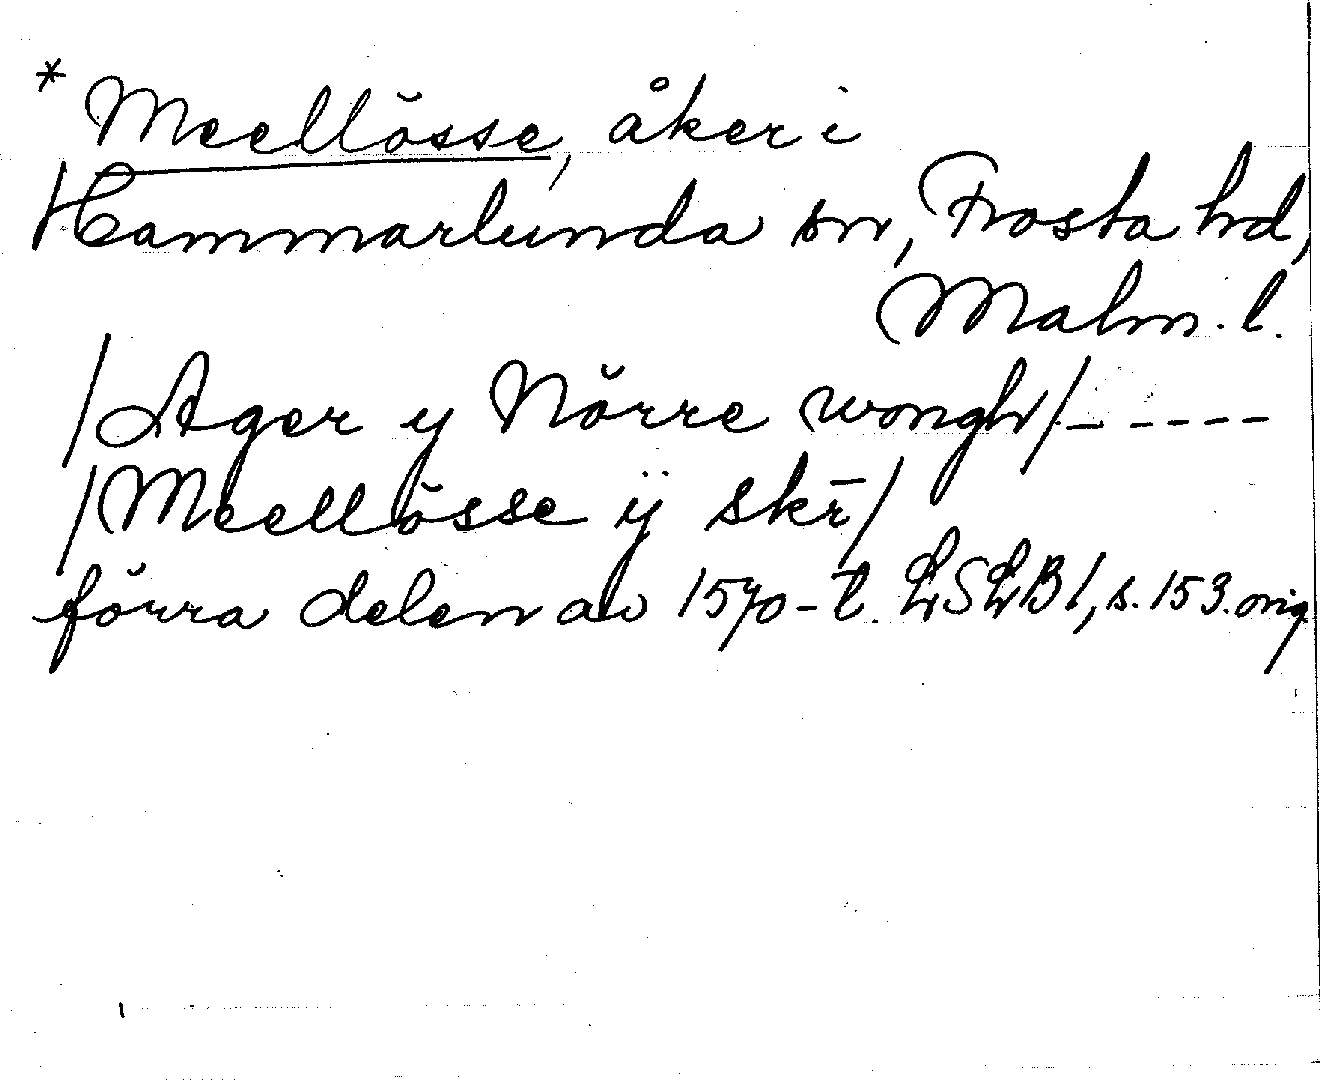 * Meellŏsse, åker i
Hammarlunda sn, Frosta hd,
Malm. l.
/Ager y Nŏrre wongh/-----
/Meellŏsse ÿ skr̄/
fŏrra delen av 1570-t. LSLB1, s. 153. orig.